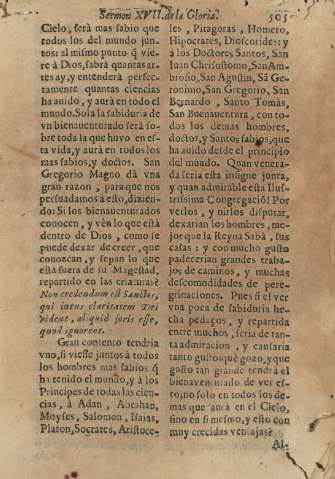 Sermon XVII. de la Gloria. 505
Cielo, serà mas sabio que
todos los del mundo jun-
tos: al mismo punto q̃ vie-
re à Dios, sabrà quantas ar-
tes ay, y entenderà perfec-
tamente quantas ciencias
ha auido, y aurà en todo el
mundo. Sola la sabiduria de
vn bienauenturado serà so-
bre toda la que huvo en es-
ta vida, y aurà en todos los
mas sabios, y doctos. San
Gregorio Magno dà vna
gran razon, para que nos
persuadamos à esto, dizien-
do: Si los bienauenturados
conocen, y vèn lo que està
dentro de Dios, como se
puede dexar de creer, que
conozcan, y sepan lo que
està fuera de su Magestad,
repartido en las criaturas?
Non credendum est Sanctos,
qui intus claritatem Dei
vident, aliquid foris esse,
quod ignorent.
Gran contento tendria
vno, si viesse juntos à todos
los hombres mas sabios q̃
ha tenido el mundo, y à los
Principes de todas las cien-
cias, à Adan, Abrahan,
Moyses, Salomon, Isaias,
Platon, Socrates, Aristote-
les, Pitagoras, Homero,
Hipocrates, Dioscorides: y
à los Doctores Santos, San
Iuan Chrisostomo, San Am-
brosio, San Agustin, Sã Ge-
ronimo, San Gregorio, San
Bernardo, Santo Tomàs,
San Buenauentura, con to-
dos los demas hombres,
doctos, y Santos sabios, que
ha auido desde el principio
del mundo. Quan venera-
da seria esta insigne junta,
y quan admirable esta Ilus-
trissima Congregaciõ! Por
verlos, y oirlos disputar,
dexarian los hombres, me-
jor que la Reyna Sabà, sus
casas: y con mucho gusto
padecerian grandes traba-
jos de caminos, y muchas
descomodidades de pere-
grinaciones. Pues si el ver
vna poca de sabiduria he-
cha pedaços, y repartida
entre muchos, seria de tan-
ta admiracion, y causaria
tanto gusto, què gozo, y què
gusto tan grande tendrà el
bienauenturado de ver es-
to, no solo en todos los de-
mas que aurà en el Cielo,
sino en si mesmo, y esto con
muy crecidas ventajas?
Al-